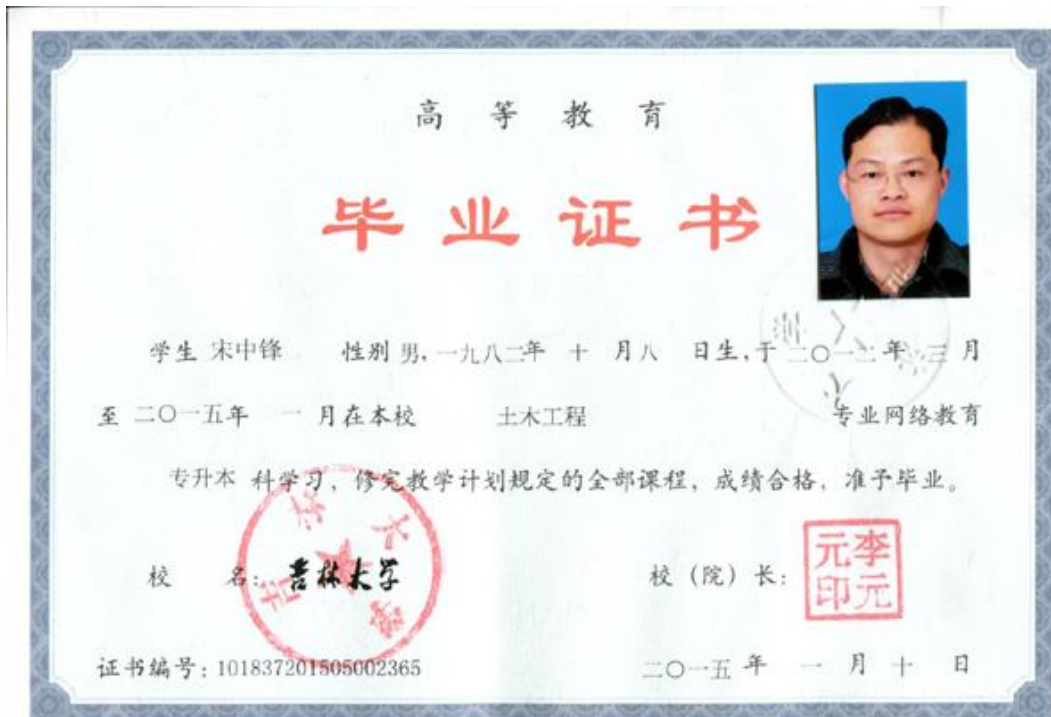 高等教育
毕业证书
学生 宋中锋 性别 男，一九八二年 十 月 八 日生，于 二〇一二年 三 月
至 二〇一五年 一 月在本校 土木工程 专业网络教育
专升本 科学习，修完教学计划规定的全部课程，成绩合格，准予毕业。
校 名：吉林大学
校（院）长：
李元元印
证书编号：101837201505002365
二〇一五年 一 月 十 日